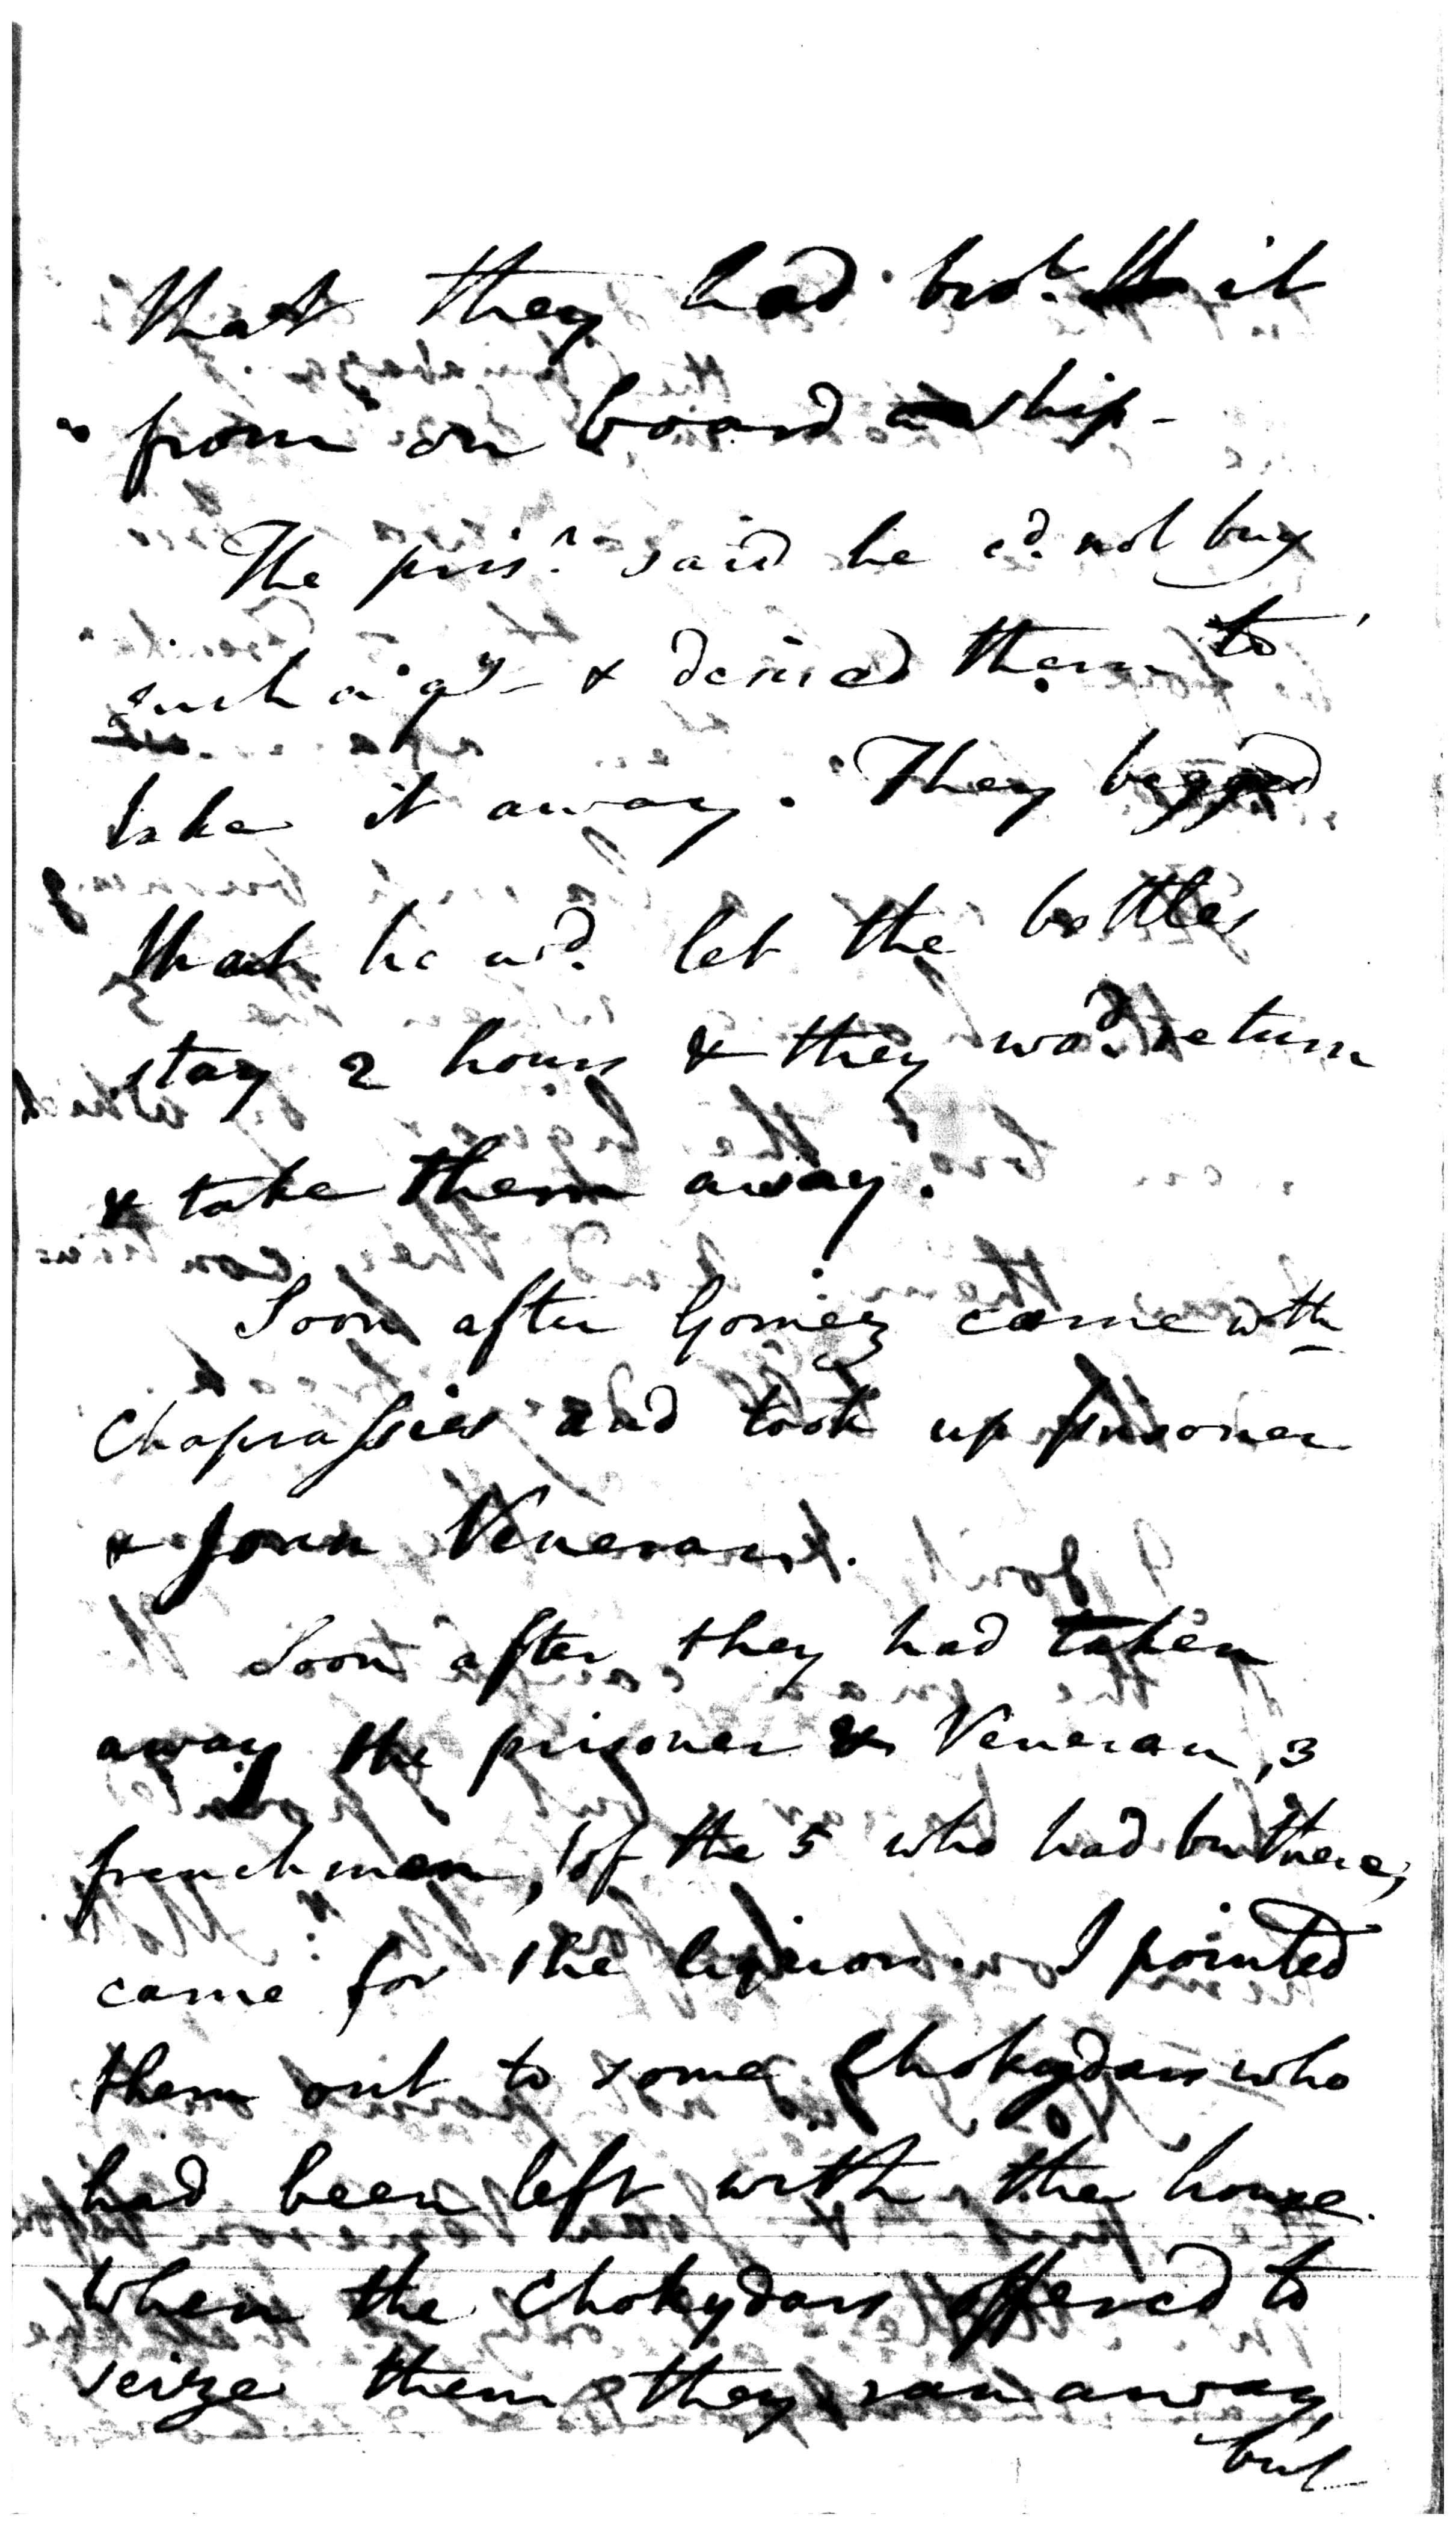 that they had bro.t it
from on board a ship -
The pris.r said he c.d not buy
such a q.y & desired them to
take it away. They begged
that he w.d let the bottles
stay 2 hours & they wo.d return
& take them away.
Soon after Gomez came with
Chaprassies and took up prisoner
& Joan Veneran.
Soon after they had taken
away the prisoner & Veneran, 3
frenchmen, of the 5 who had been there,
came for the liquor. I pointed
them out to some Chokydars who
had been left with the house.
When the Chokydars offered to
seize them they ran away,
but